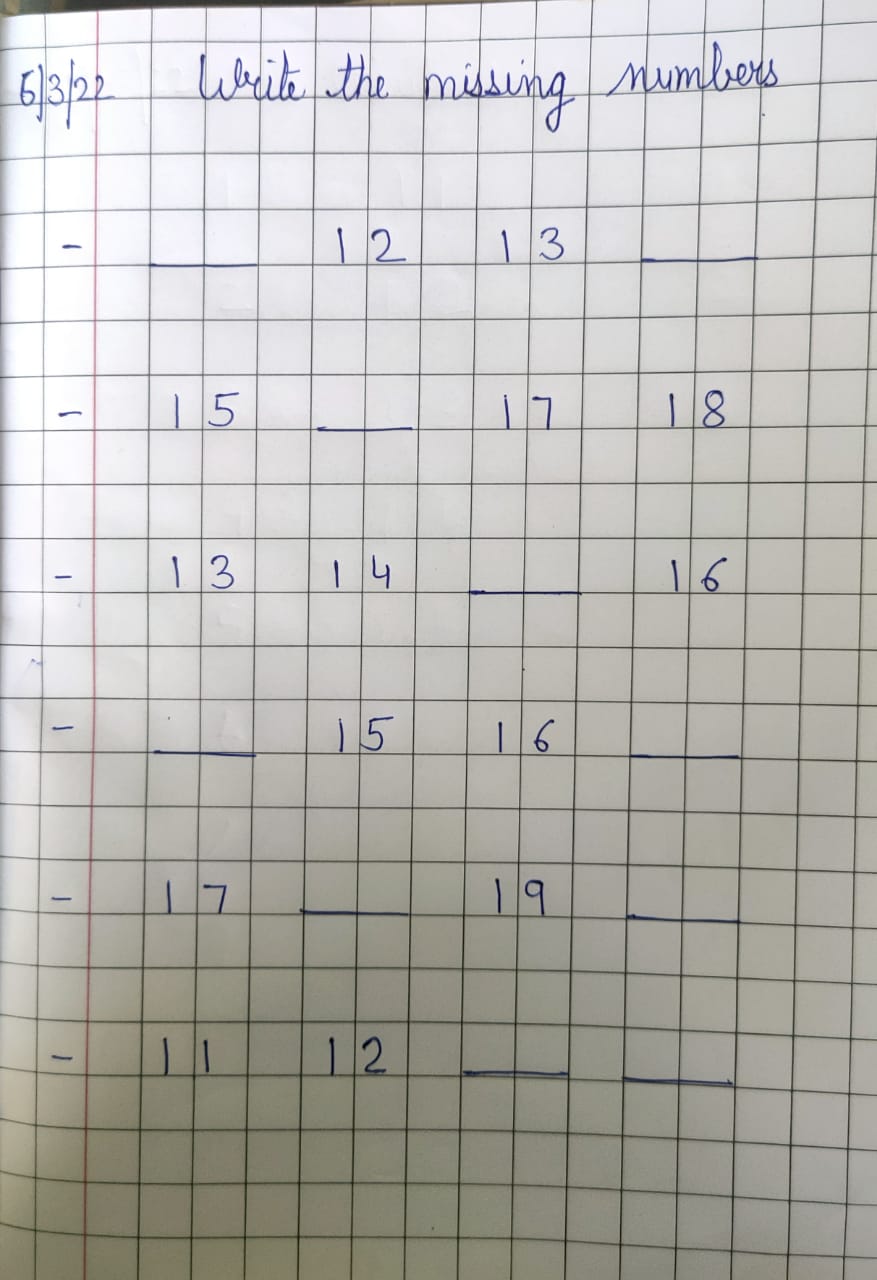 6/3/22 Write the missing numbers
- __ 12 13 __
- 15 __ 17 18
- 13 14 __ 16
- __ 15 16 __
- 17 __ 19 __
- 11 12 __ __